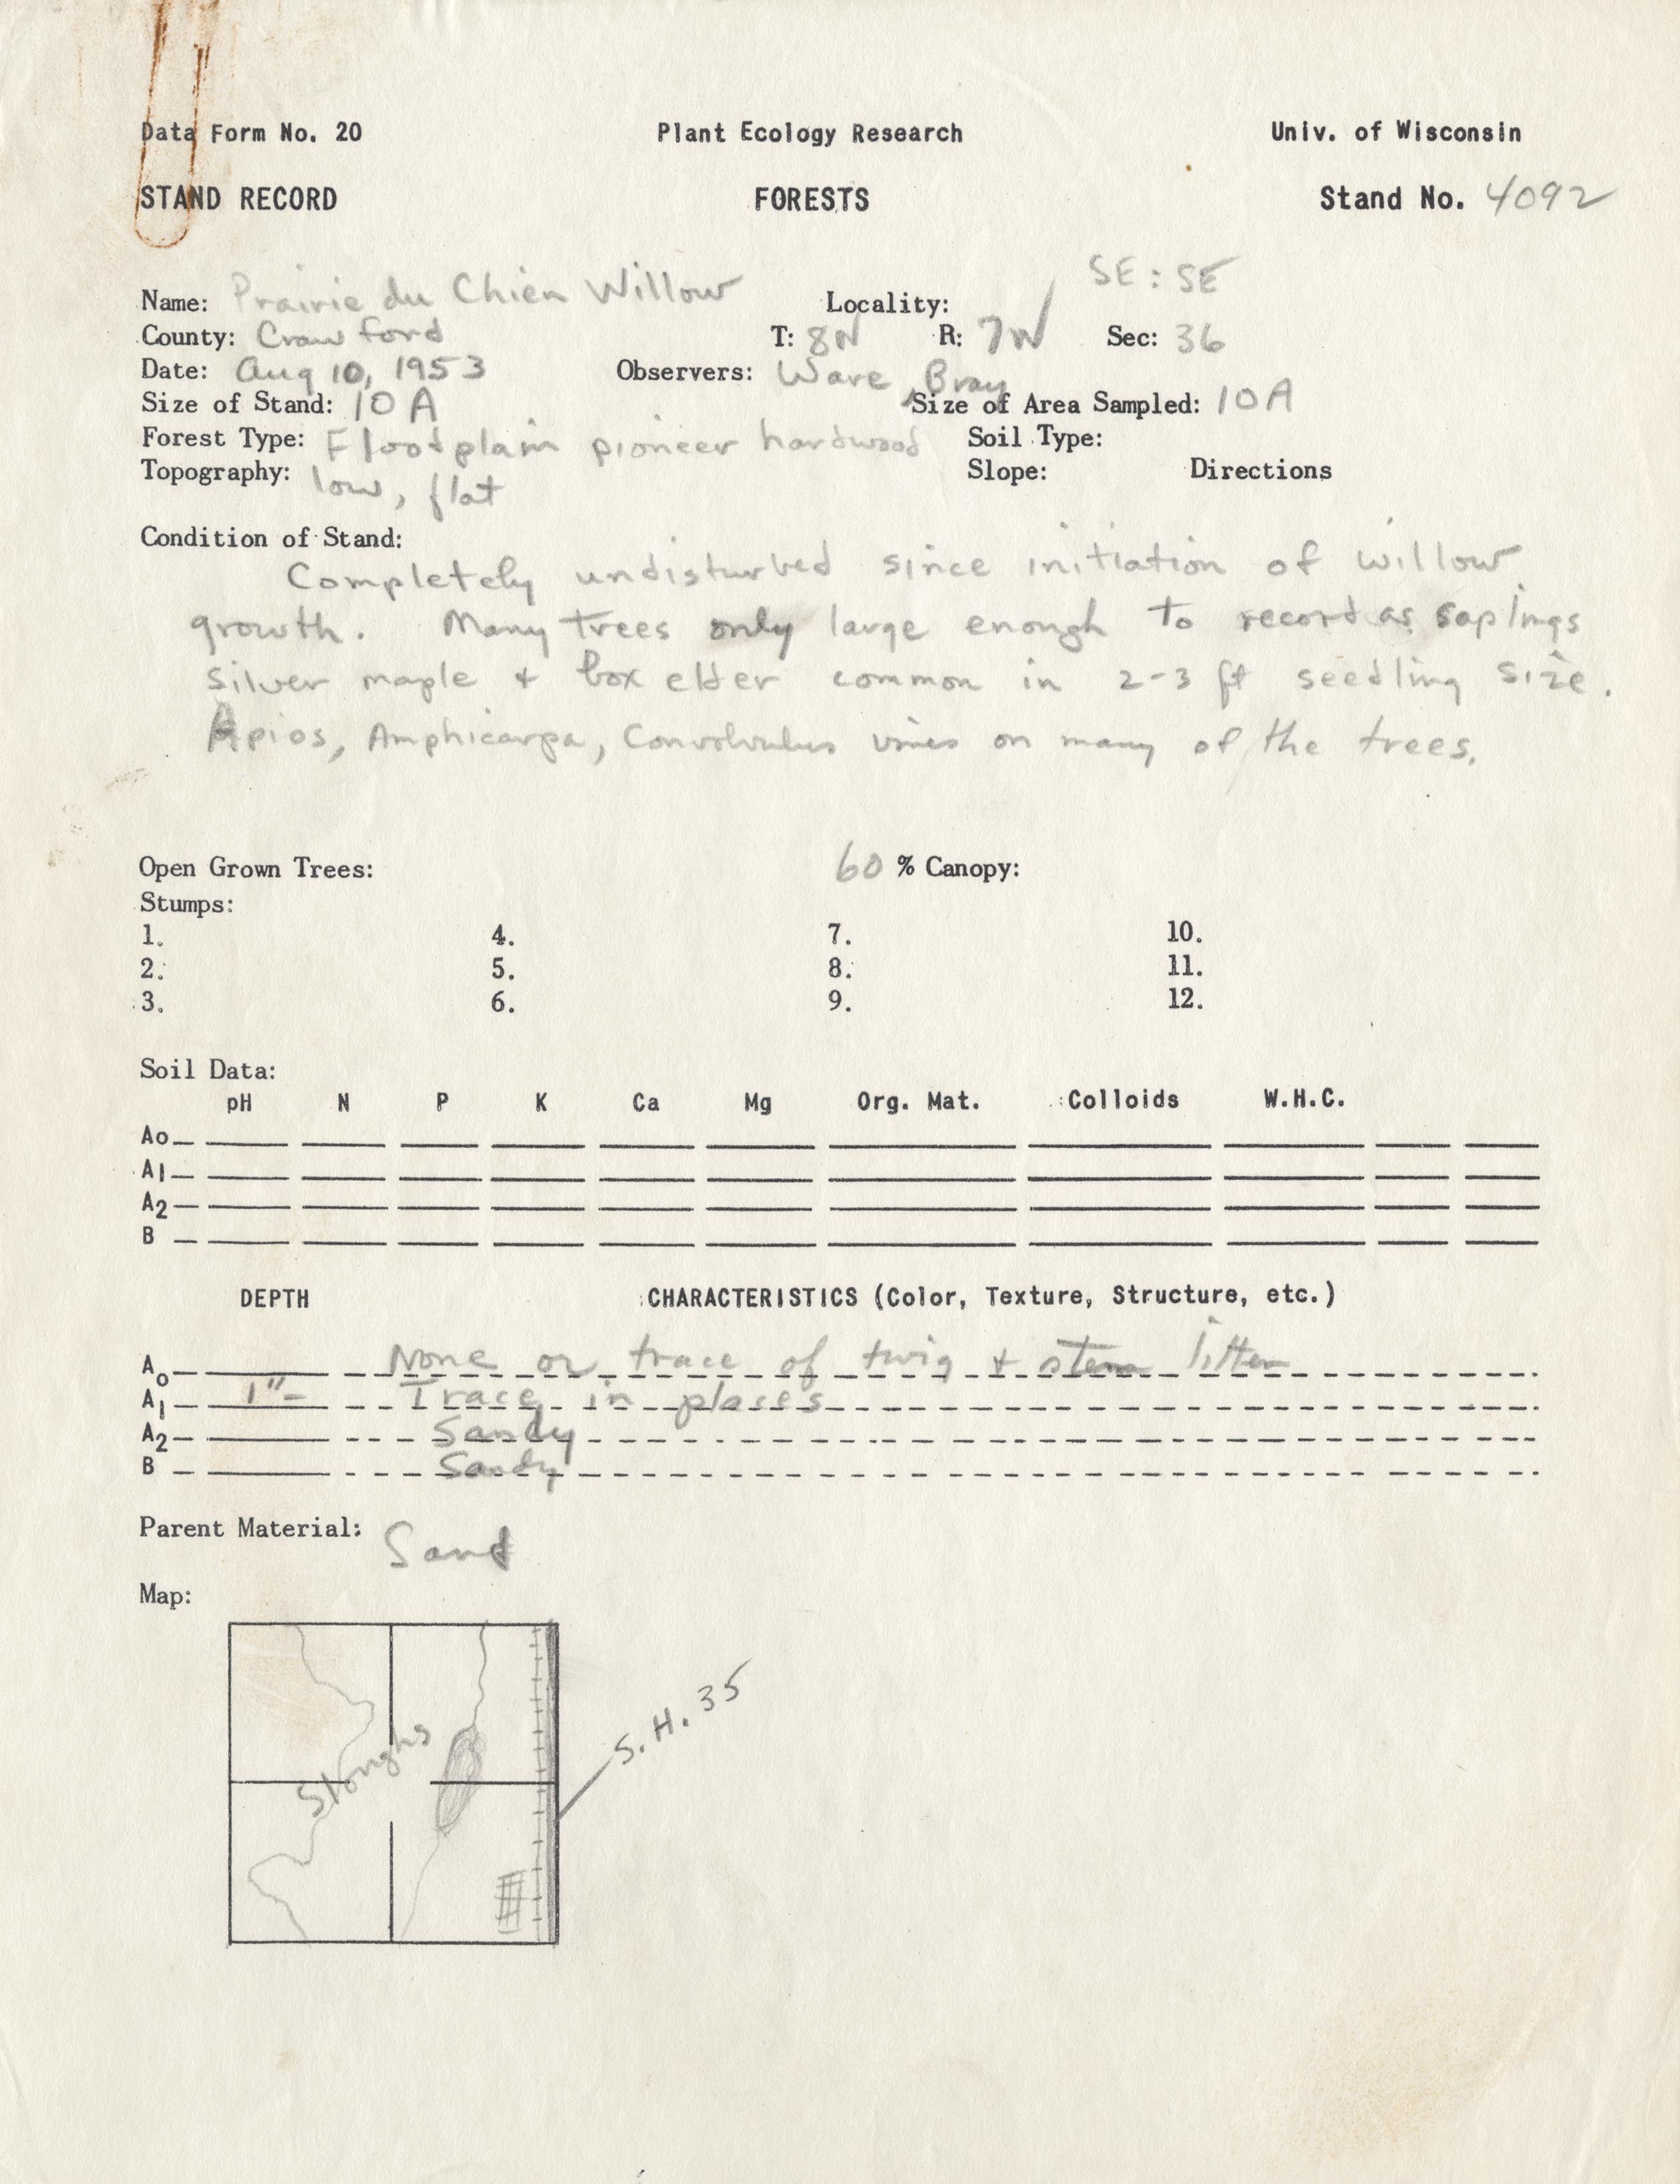 Data Form No. 20 Plant Ecology Research Univ. of Wisconsin
STAND RECORD FORESTS Stand No. 4092
SE: SE
Name: Prairie du Chien Willow Locality:
County: Crawford T: 8N R: 7W Sec: 36
Date: Aug 10, 1953 Observers: Ware, Bray
Size of Stand: 10 A Size of Area Sampled: 10A
Forest Type: Floodplain pioneer hardwood Soil Type:
Topography: low, flat Slope: Directions
Condition of Stand:
Completely undisturbed since initiation of willow
growth. Many trees only large enough to record as saplings
silver maple + box elder common in 2-3 ft seedling size.
Apios, Amphicarpa, Convolvulus vines on many of the trees.
Open Grown Trees: 60 % Canopy:
Stumps:
1. 4. 7. 10.
2. 5. 8. 11.
3. 6. 9. 12.
Soil Data:
pH N P K Ca Mg Org. Mat. Colloids W.H.C.
Ao
A1
A2
B
DEPTH CHARACTERISTICS (Color, Texture, Structure, etc.)
Ao None or trace of twig + stem litter
A1 1"- Trace in places
A2 Sandy
B Sandy
Parent Material: Sand
Map:
Sloughs
S.H. 35